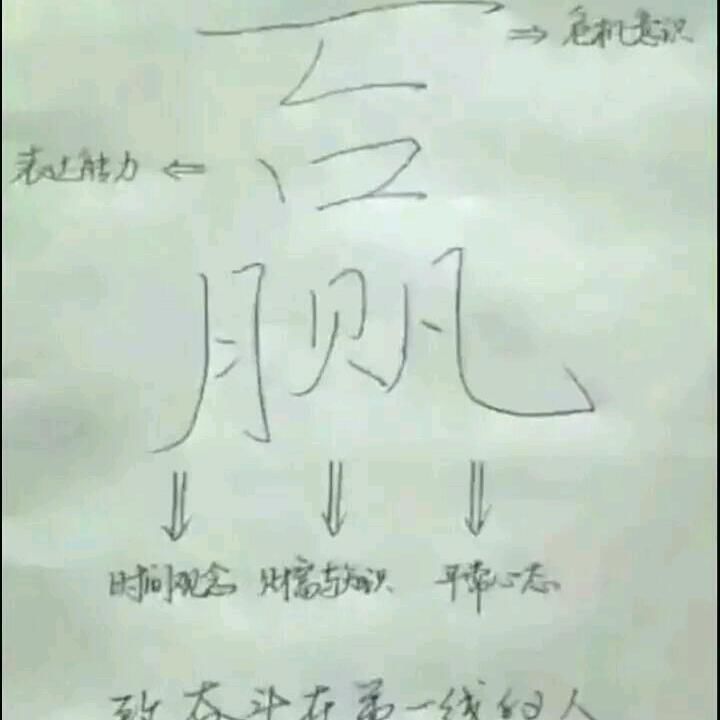 ⇒ 危机意识
表达能力 ⇐
赢
时间观念 财富与知识 平常心态
致奋斗在第一线的人